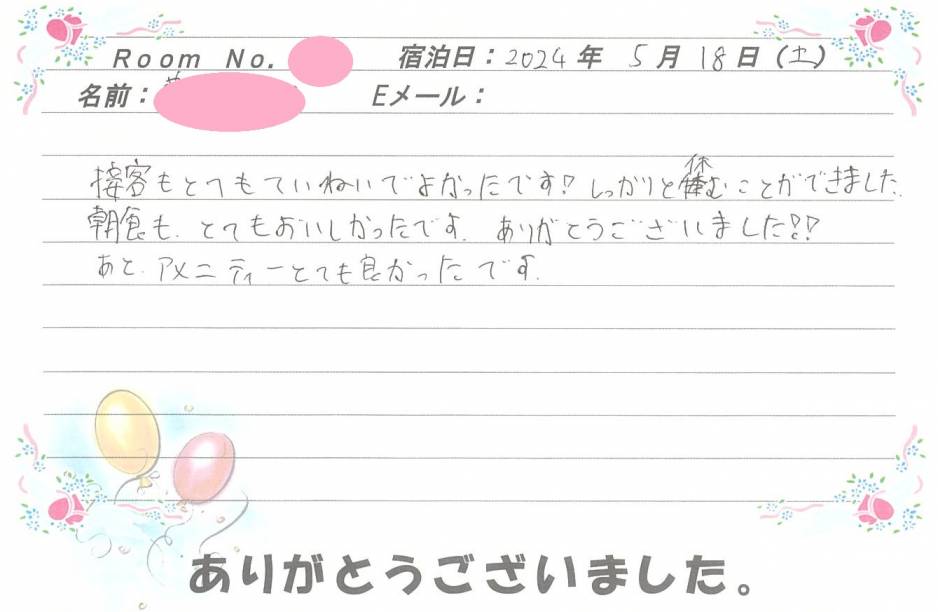 Room No. 宿泊日：2024年 5月 18日（土）
名前： Eメール：
接客もとてもていねいでよかったです！しっかりと休むことができました。
朝食も、とてもおいしかったです。ありがとうございました!!
あと、アメニティーとても良かったです。
ありがとうございました。